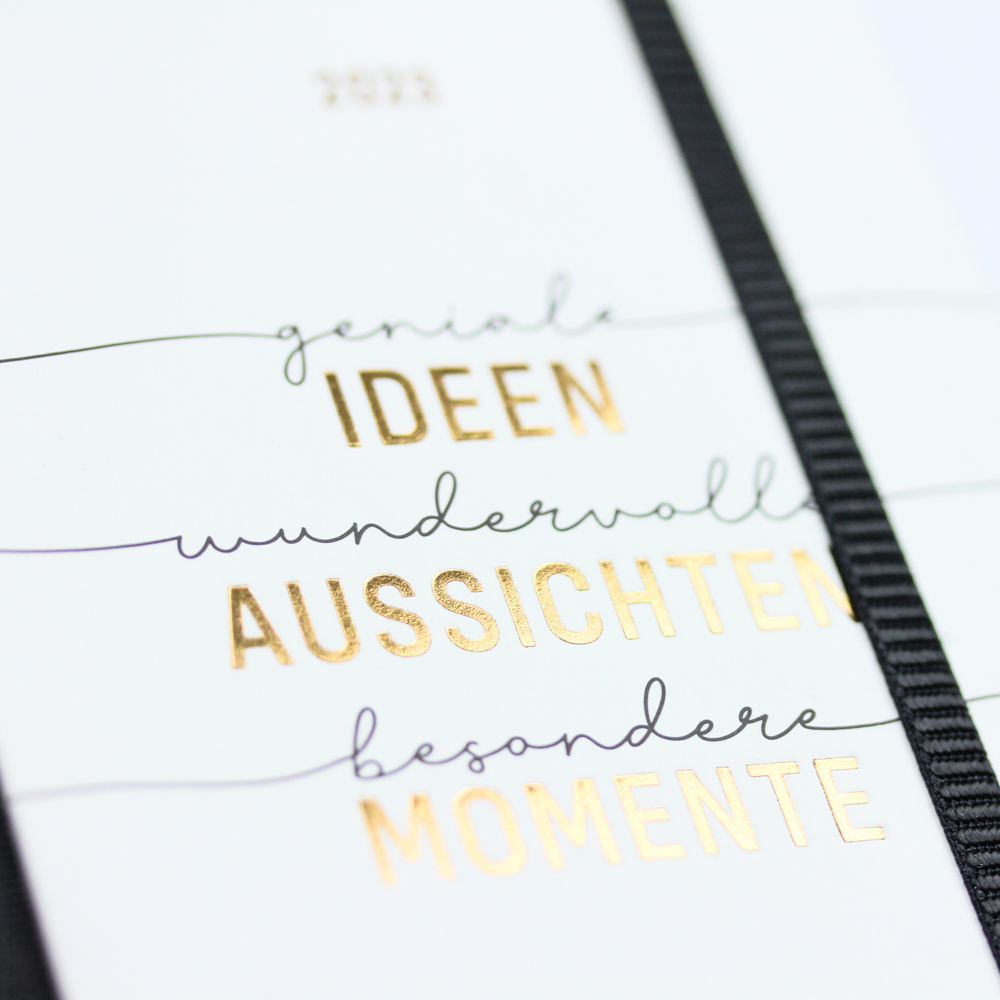 2023
geniale
IDEEN
wundervolle
AUSSICHTEN
besondere
MOMENTE